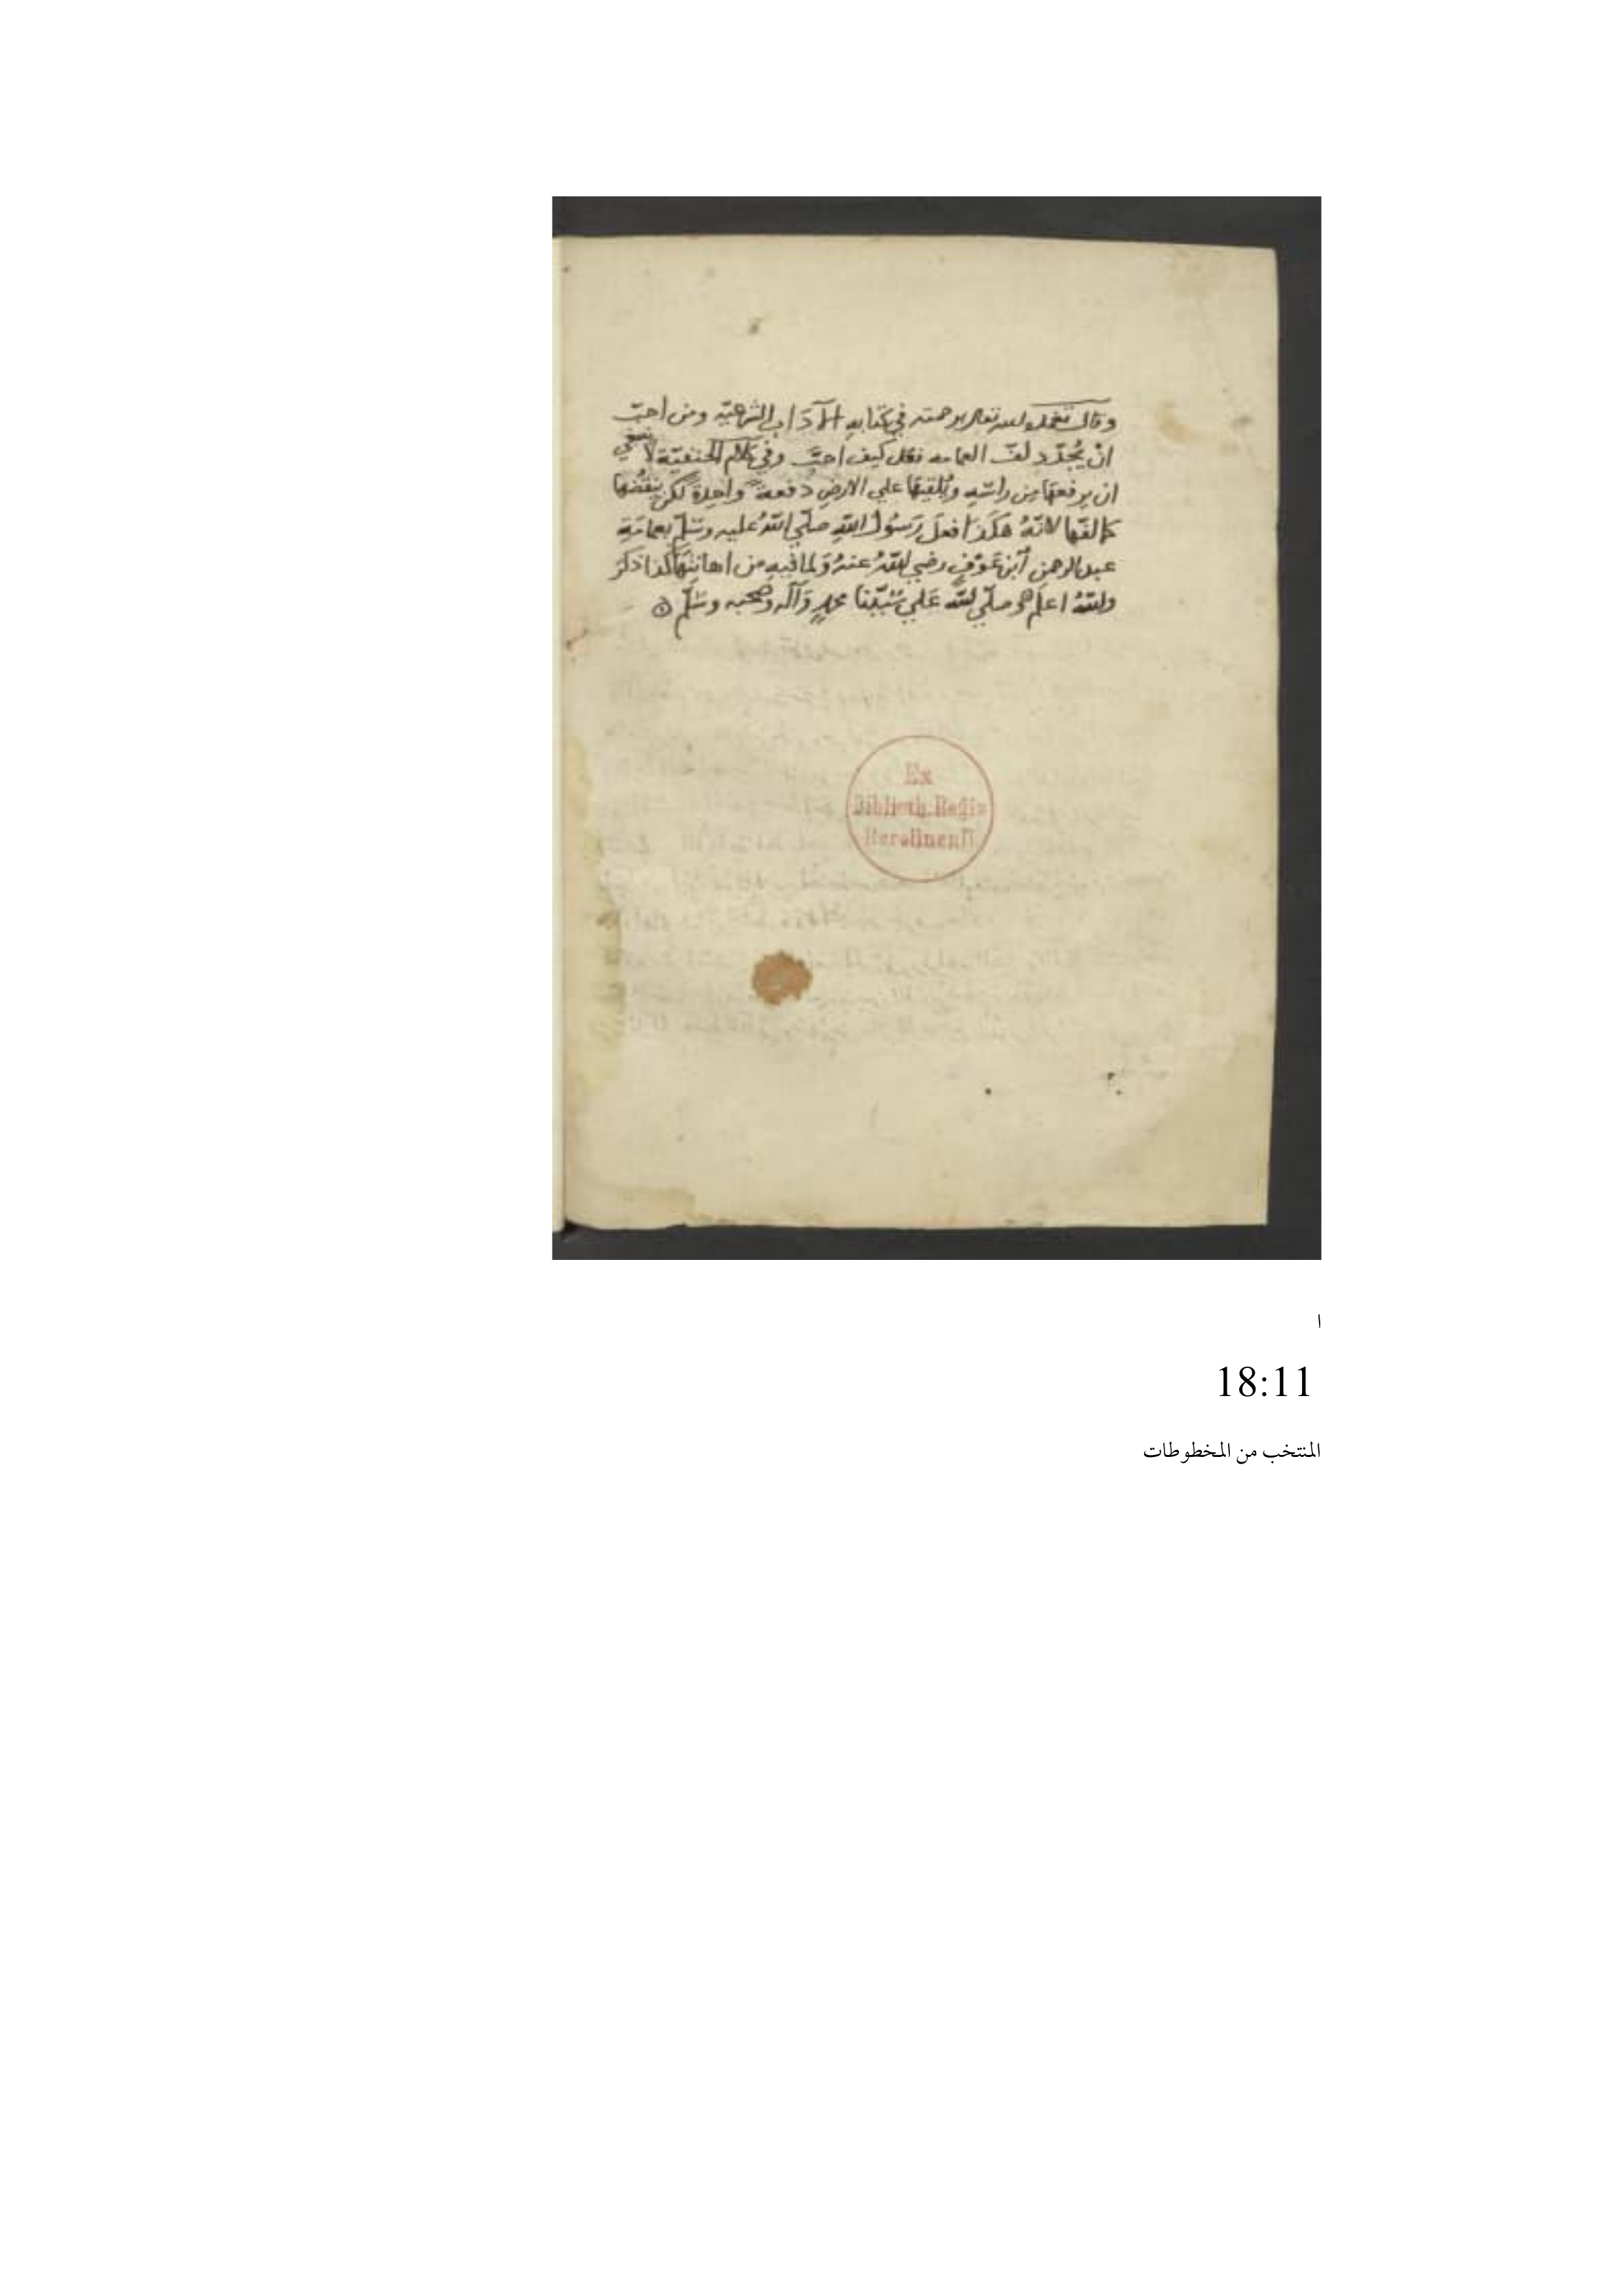 وقال تغمده الله تعالى برحمته في كتابه الآدَاب الشرعيّه ومن احبّ
انْ يُجدّد لفّ العمامه فعل كيف احبَّ وفي كلام الحنفيّة لا ينبغي
ان يرفعهَا من راسِهِ ويُلقيهَا علي الارضِ دفعةً واحِدةً لكن ينقُضُها
كما لفّها لانّهُ هَكَذَا فعلَ رَسُولُ اللهِ صلّي اللهُ عليه وسَلّم بعمامَةِ
عبد الرحمن ابْن عَوْفٍ رضي اللهُ عنهُ وَلما فيهِ من اهانتِهَا كذا ذكرَ
واللهُ اعلم وصلّي الله عَلي سَيّدنا محمدٍ وَآله وصحبه وسَلّم
Ex
Biblioth. Regia
Berolinensi.
ا
18:11
المنتخب من المخطوطات